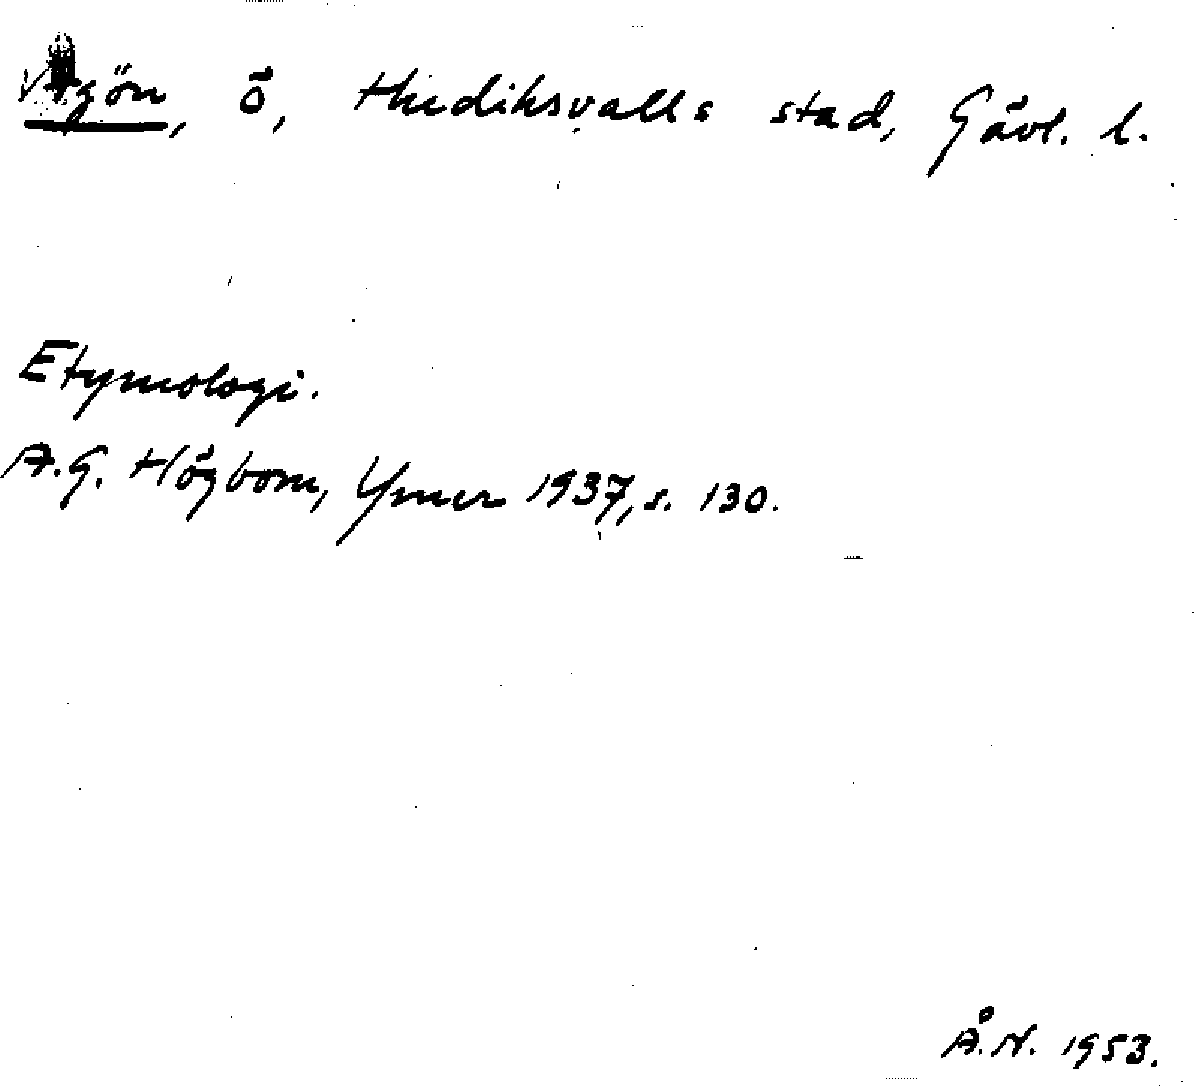 Agön, ö, Hudiksvalls stad, Gävl. l.
Etymologi.
A.G. Högbom, Ymer 1937, s. 130.
Å.N. 1953.